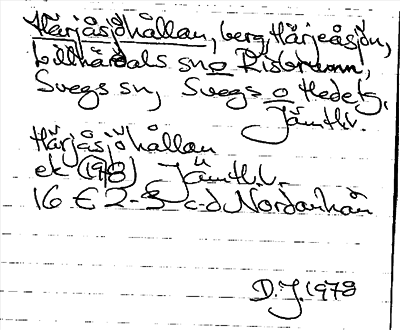 Härjåsjöhållan, berg, Härjeåsjön,
Lillhärdals sn o Risbrunn,
Svegs sn, Svegs o Hedets,
Jämtl.v.
Härjåsjöhållan
ek (198) Jämtl.v.
16 E 2-3 c-d Nordanhån
D.J. 1978